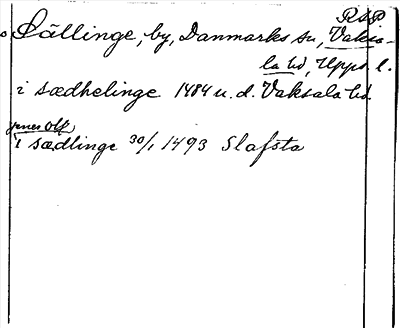 RSP
Sällinge, by, Danmarks sn, Vaksa-
la hd, Upps. l.
i sædhelinge 1484 u. d. Vaksala hd.
i sædlinge 30/1 1493 Slafsta